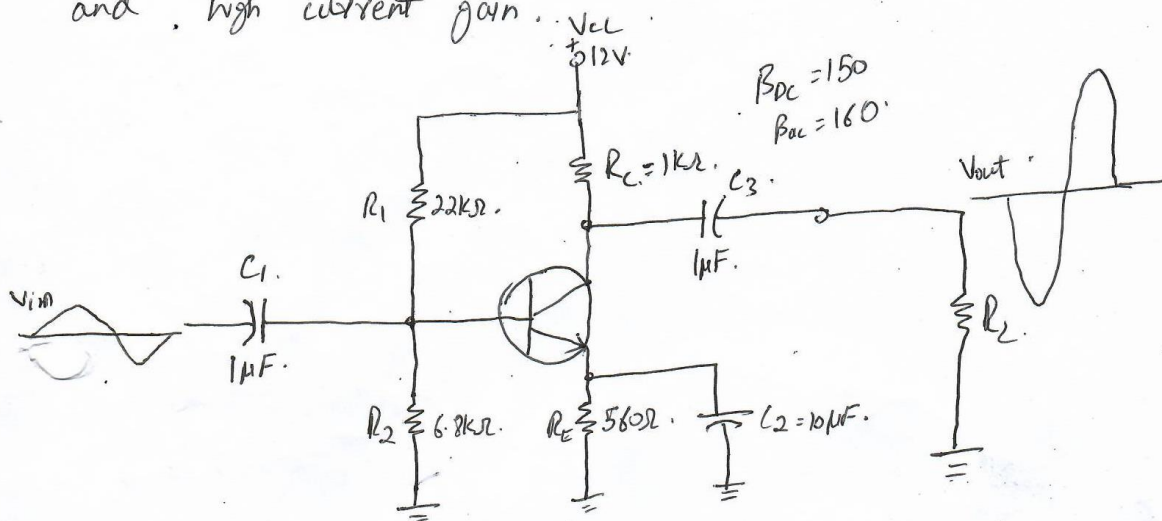 and . high current gain.
Vcc
+
12V.
βDC = 150
βac = 160
RC = 1kΩ.
C3.
Vout
R1
22kΩ.
1µF.
C1.
Vin
1µF.
RL
R2
6.8kΩ.
RE
560Ω.
C2 = 10µF.